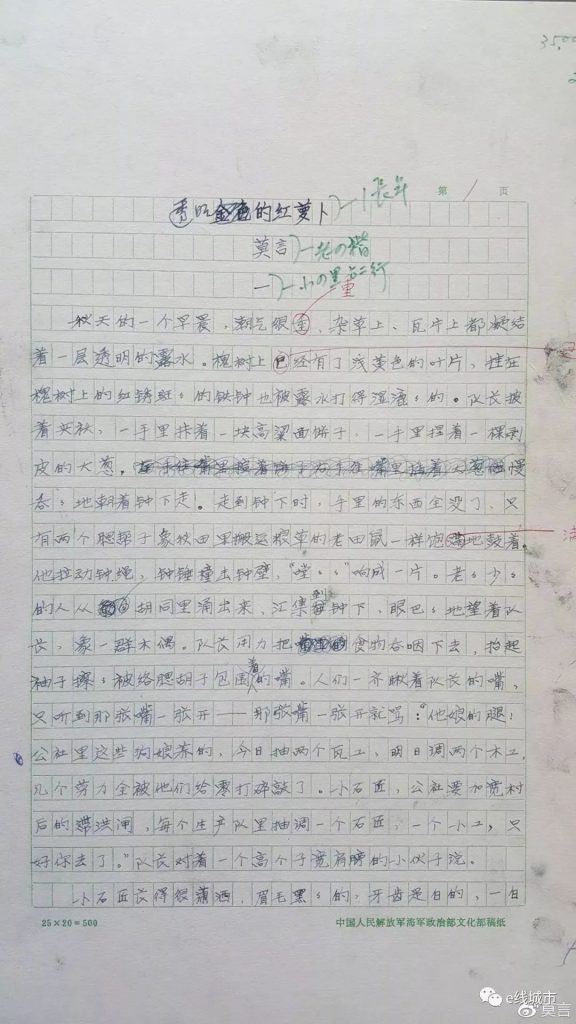 35,00
第 1 页
透明的红萝卜
莫言
一
重
秋天的一个早晨,潮气很重,杂草上、瓦片上都凝结
着一层透明的露水。槐树上已经有了浅黄色的叶片,挂在
槐树上的红锈斑〻的铁钟也被露水打得湿漉〻的。队长披
着夹袄,一手里拤着一块高粱面饼子,一手里捏着一棵剥
皮的大葱,慢
吞〻地朝着钟下走。走到钟下时,手里的东西全没了,只
有两个腮帮子象秋田里搬运粮草的老田鼠一样饱满地鼓着。
满
他拉动钟绳,钟锤撞击钟壁,"嘡〻〻"响成一片。老〻少〻
的人从胡同里涌出来,汇集到钟下,眼巴〻地望着队
长,象一群木偶。队长用力把食物吞咽下去,抬起
袖子擦〻被络腮胡子包围着的嘴。人们一齐瞅着队长的嘴,
只听到那张嘴一张开——那张嘴一张开就骂:"他娘的腿!
公社里这些狗娘养的,今日抽两个瓦工,明日调两个木工,
几个劳力全被他们给零打碎敲了。小石匠,公社要加宽村
后的滞洪闸,每个生产队里抽调一个石匠,一个小工,只
好你去了。"队长对着一个高个子宽肩膀的小伙子说。
小石匠长得很潇洒,眉毛黑〻的,牙齿是白的,一白
25×20=500
中国人民解放军海军政治部文化部稿纸
e线城市
莫言